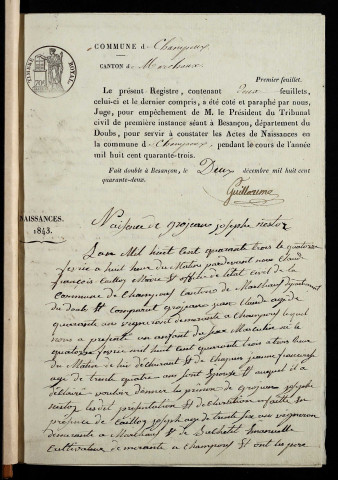 TIMBRE ROYAL
COMMUNE de Champoux
CANTON de Marchaux
Premier feuillet.
Le présent Registre, contenant Deux feuillets,
celui-ci et le dernier compris, a été coté et paraphé par nous,
Juge, pour empêchement de M. le Président du Tribunal
civil de première instance séant à Besançon, département du
Doubs, pour servir à constater les Actes de Naissances en
la commune de Champoux pendant le cours de l'année
mil huit cent quarante-trois.
Fait double à Besançon, le Deux décembre mil huit cent
quarante-deux.
Guillerme
NAISSANCES.
1843.
Naissance de grosjean joseph
L'an Mil huit Cent quarante trois le quatorze
fevrié a huit heure du Matin pardevant nous Claude
françois Maire et officié de l'état civil de la
Commune de Champoux Cantons de Marchaux departement
du doubs et Comparut grosjean jean Claude agé de
quarante un vigneron demeurante a Champoux lequel
nous a presente un enfant du sexe Masculin né le
quatorze fevrié mil huit Cent quarante trois a
du Matin de lui déclarant et de jeanne françoise
age de trente quatre ans Son Epouse et auquel il a
déclaré vouloir donner les prenon de grosjean joseph
les dit présentation et declaration faitte en
présence de joseph age de trente six ans vigneron
demeurante a Marchaux et de
Cultivateur demeurante a Champoux et ont les pere